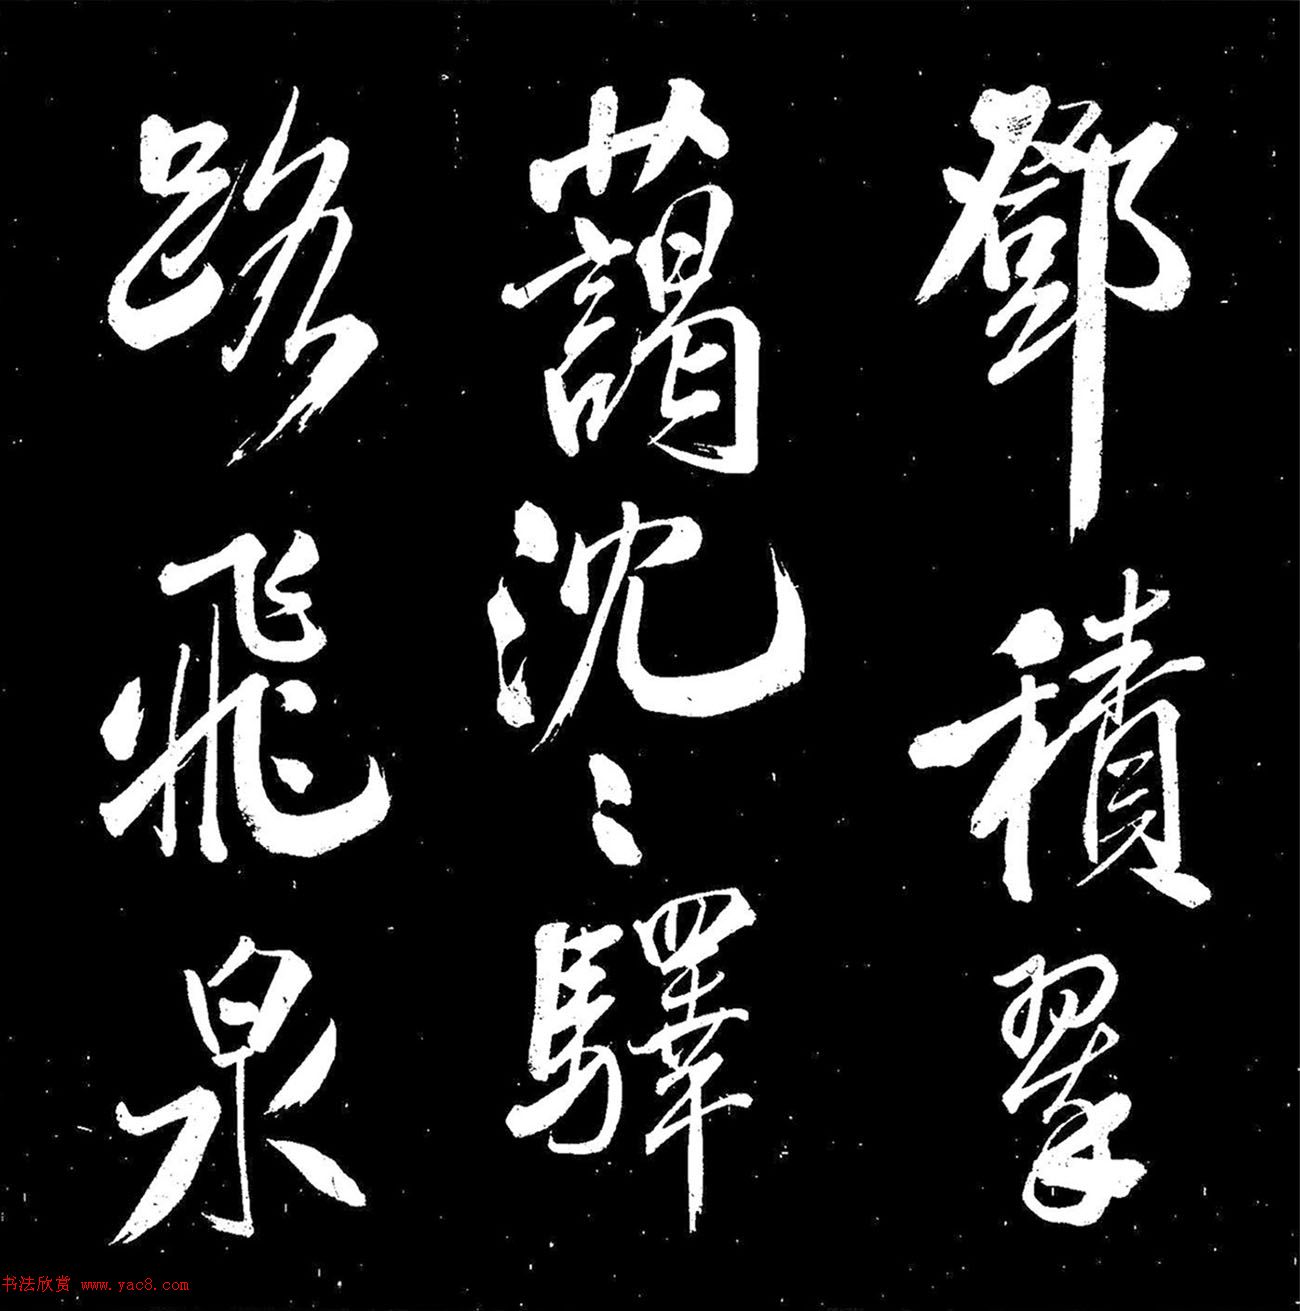 鄧積翠
藹沈〻驛
路飛泉
书法欣赏 www.yac8.com